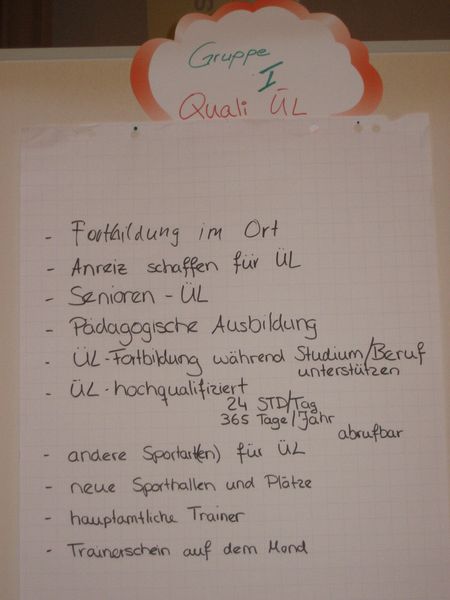 Gruppe
I
Quali ÜL
- Fortbildung im Ort
- Anreiz schaffen für ÜL
- Senioren - ÜL
- Pädagogische Ausbildung
- ÜL-Fortbildung während Studium/Beruf
unterstützen
- ÜL-hochqualifiziert
24 STD/Tag
365 Tage/Jahr
abrufbar
- andere Sportart(en) für ÜL
- neue Sporthallen und Plätze
- hauptamtliche Trainer
- Trainerschein auf dem Mond